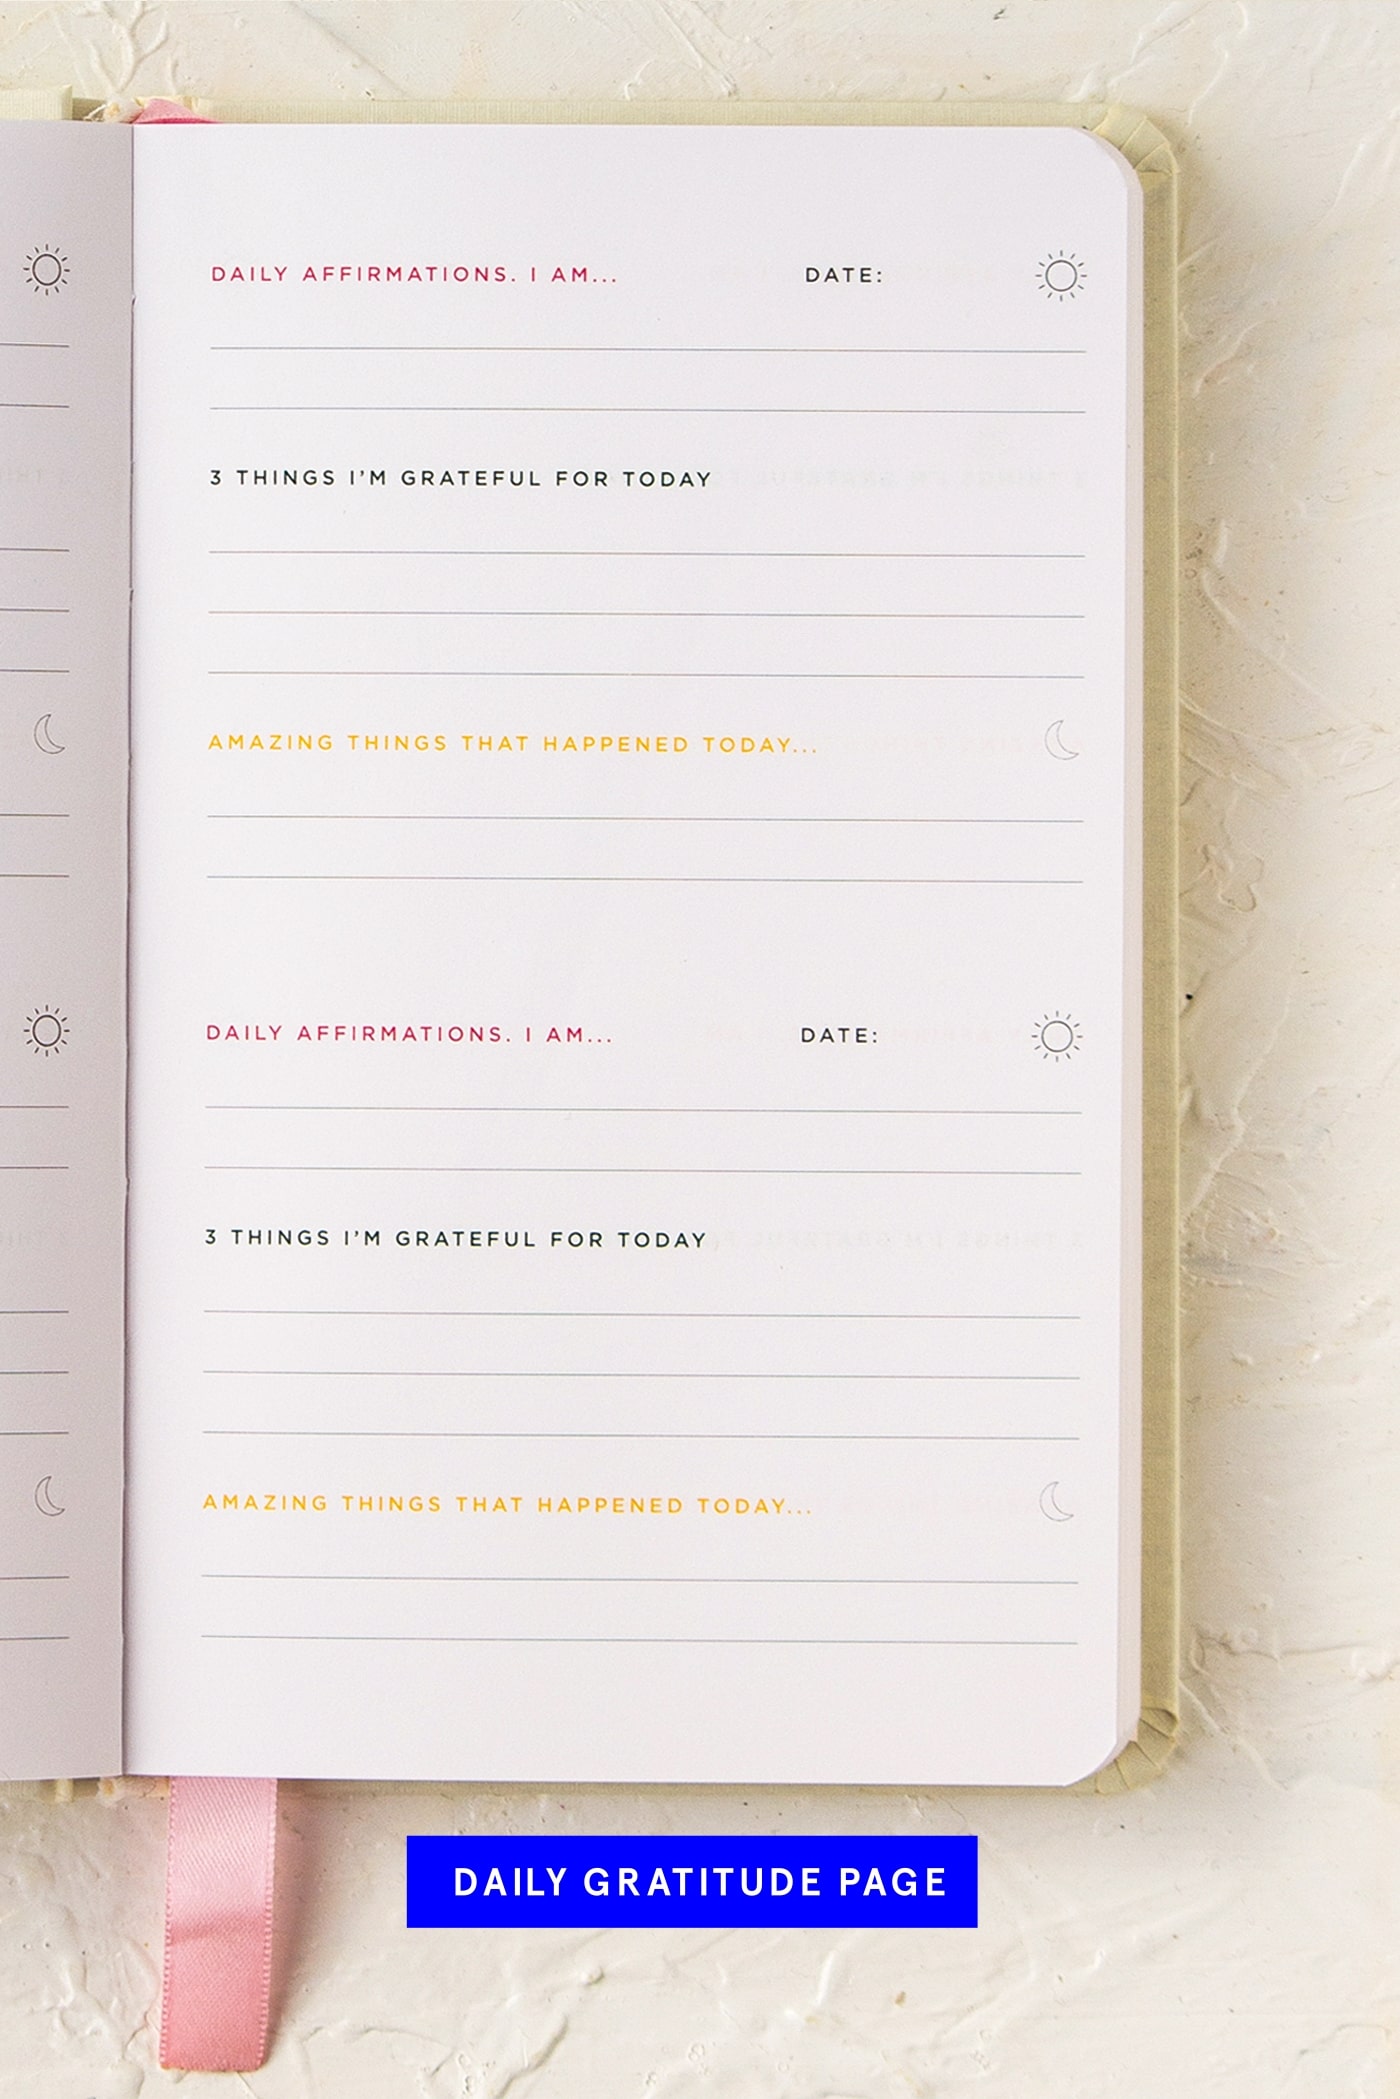 DAILY AFFIRMATIONS. I AM... DATE:
3 THINGS I'M GRATEFUL FOR TODAY
AMAZING THINGS THAT HAPPENED TODAY...
DAILY AFFIRMATIONS. I AM... DATE:
3 THINGS I'M GRATEFUL FOR TODAY
AMAZING THINGS THAT HAPPENED TODAY...
DAILY GRATITUDE PAGE